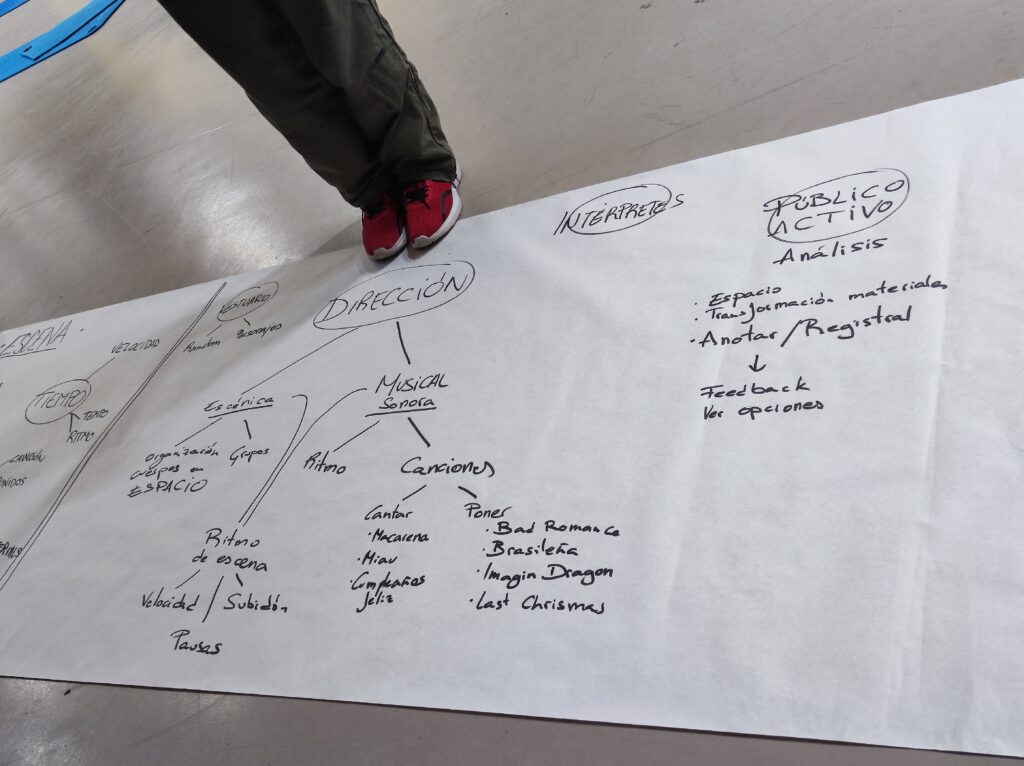 ESCENA
VELOCIDAD
TIEMPO
TEMPO
RITMO
VESTUARIO
Random
Personajes
DIRECCIÓN
Escénica
organización
cuerpos en
ESPACIO
Grupos
MUSICAL
Sonora
Ritmo
Canciones
Cantar
• Macarena
• Miau
• Cumpleaños
feliz
Poner
• Bad Romance
• Brasileña
• Imagin Dragon
• Last Chrismas
Ritmo
de escena
Velocidad / Subidón
Pausas
INTÉRPRETES
PÚBLICO
ACTIVO
Análisis
• Espacio
• Transformación materiales
• Anotar/Registral
Feedback
Ver opciones